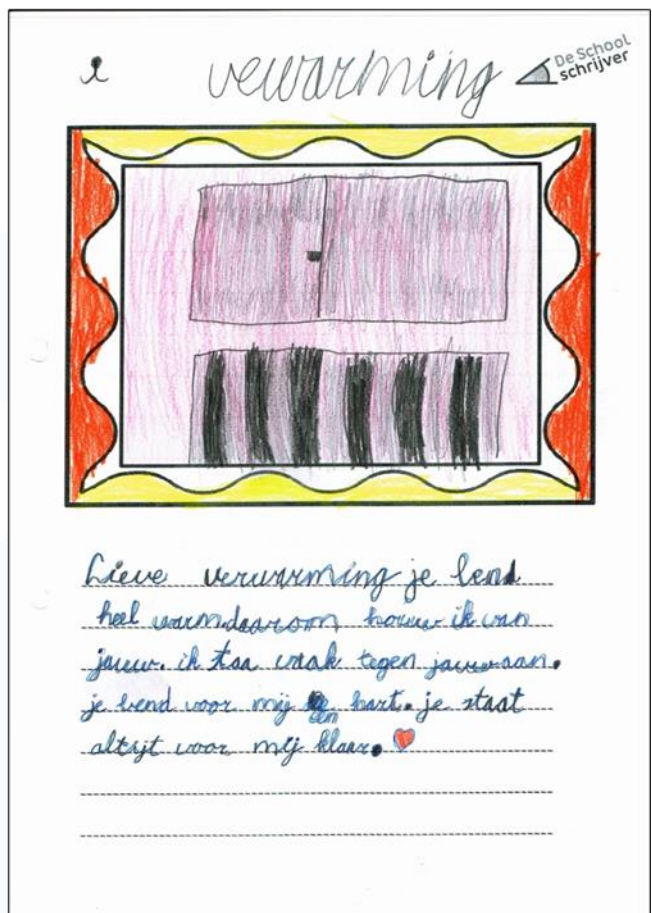 vewarming
De School
schrijver
Lieve verwarming je bend
heel warm.daarom houw ik van
jouw. ik staa vaak tegen jouw aan.
je bend voor mij een hart. je staat
altijt voor mij klaar.